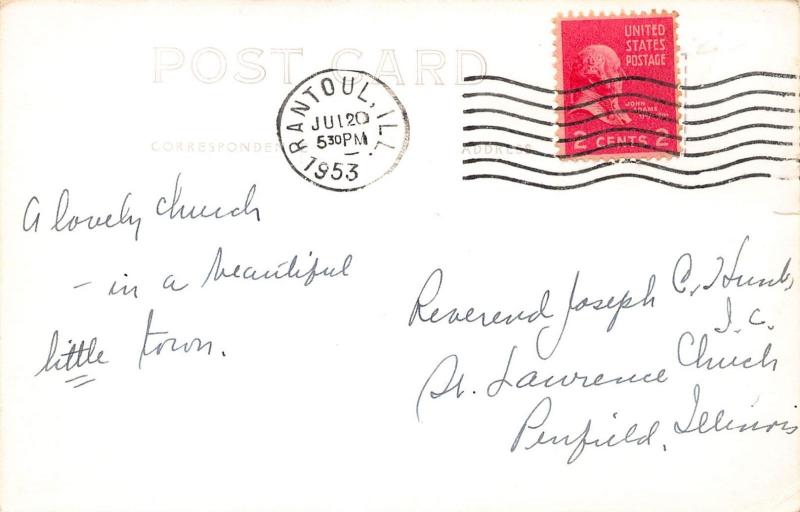 POST CARD
UNITED
STATES
POSTAGE
JOHN
ADAMS
2 CENTS 2
RANTOUL, ILL.
JUL 20
5 30 PM
1953
CORRESPONDENCE
ADDRESS
A lovely church
— in a beautiful
little town.
Reverend Joseph C.
J.C.
St. Lawrence Church
Penfield, Illinois